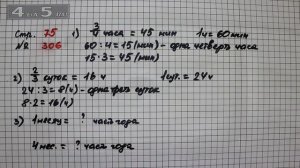 4 5
Стр. 75
№ 306
1) 3/4 часа = 45 мин 1ч = 60 мин
60 : 4 = 15 (мин) - одна четверть часа
15 · 3 = 45 (мин)
2) 2/3 суток = 16 ч 1 сут. = 24 ч
24 : 3 = 8 (ч) - одна треть суток
8 · 2 = 16 (ч)
3) 1 месяц = ? часть года
4 мес. = ? часть года